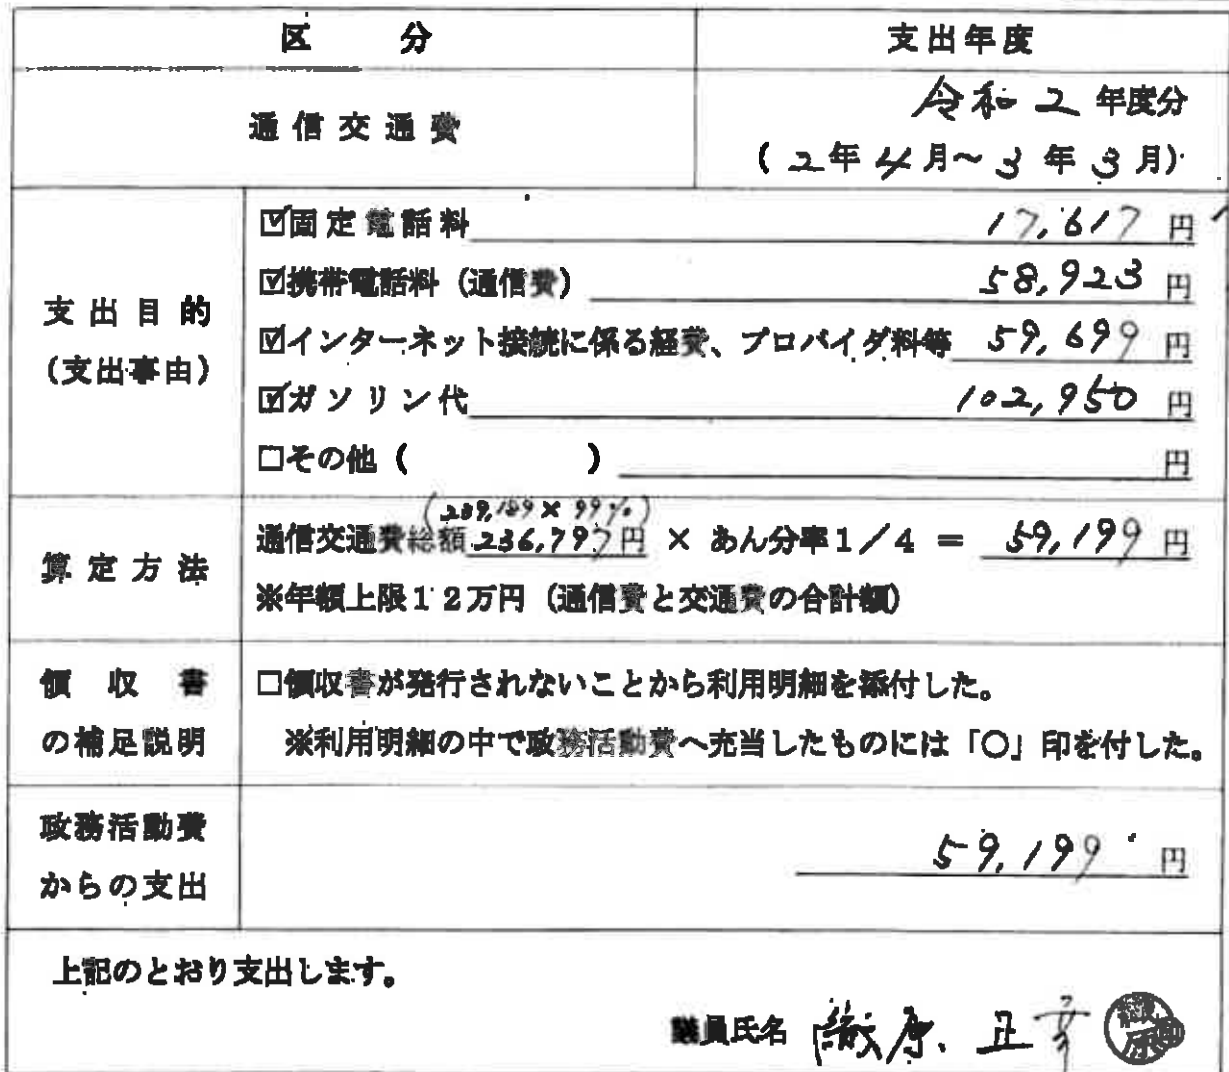 区 分 支出年度
通信交通費 令和2年度分
(2年4月~3年3月)
支出目的
(支出事由)
☑固定電話料 17,617円
☑携帯電話料(通信費) 58,923円
☑インターネット接続に係る経費、プロバイダ料等 59,699円
☑ガソリン代 102,950円
□その他( ) 円
算定方法
(239,189×99%)
通信交通費総額 236,797円 × あん分率1/4 = 59,199円
※年額上限12万円(通信費と交通費の合計額)
領収書
の補足説明
□領収書が発行されないことから利用明細を添付した。
※利用明細の中で政務活動費へ充当したものには「○」印を付した。
政務活動費
からの支出
59,199円
上記のとおり支出します。
議員氏名 原 正